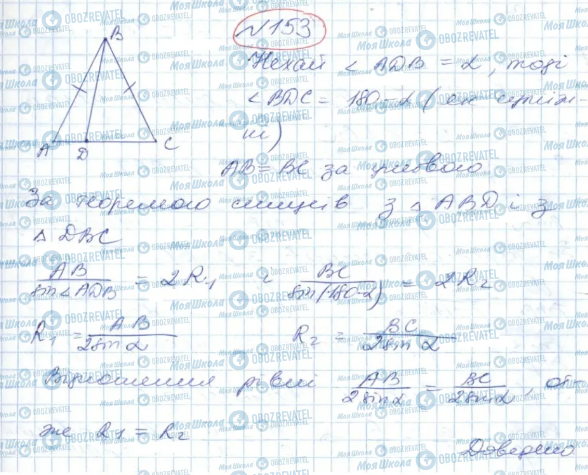 №153
B
Нехай ∠ADB = α, тоді
∠BDC = 180 - α (як суміж
ні)
A D C
AB = BC за умовою
За теоремою синусів з △ABD і з
△DBC
AB / sin∠ADB = 2R₁ і BC / sin(180-α) = 2R₂
R₁ = AB / 2sinα R₂ = BC / 2sinα
Відношення рівні AB / 2sinα = BC / 2sinα, от
же R₁ = R₂
Доведено
Моя Школа
OBOZREVATEL